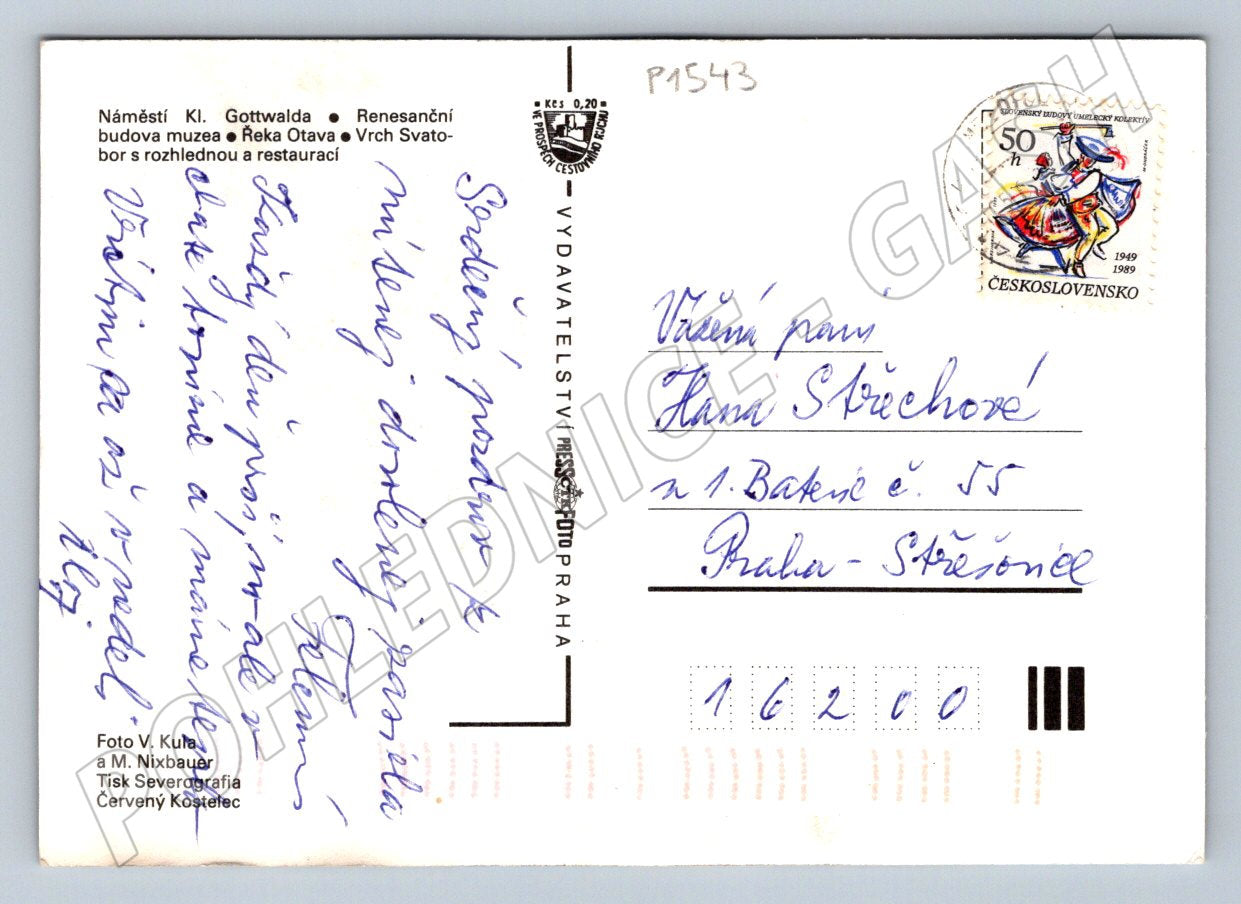 Náměstí Kl. Gottwalda ● Renesanční
budova muzea ● Řeka Otava ● Vrch Svato-
bor s rozhlednou a restaurací
Srdečný pozdrav z
dovolené posílá
Každý den prší, ale v
chatě topíme a máme teplo
až v neděli.
Foto V. Kula
a M. Nixbauer
Tisk Severografia
Červený Kostelec
Kčs 0,20
VE PROSPĚCH CESTOVNÍHO RUCHU
VYDAVATELSTVÍ PRESSFOTO PRAHA
ČTK
P1543
SLOVENSKÝ ĽUDOVÝ UMELECKÝ KOLEKTÍV
50
h
1949
1989
ČESKOSLOVENSKO
Vážená paní
Hana Střechová
u 1. Baterie č. 55
Praha - Střešovice
16200
POHLEDNICE - GASH